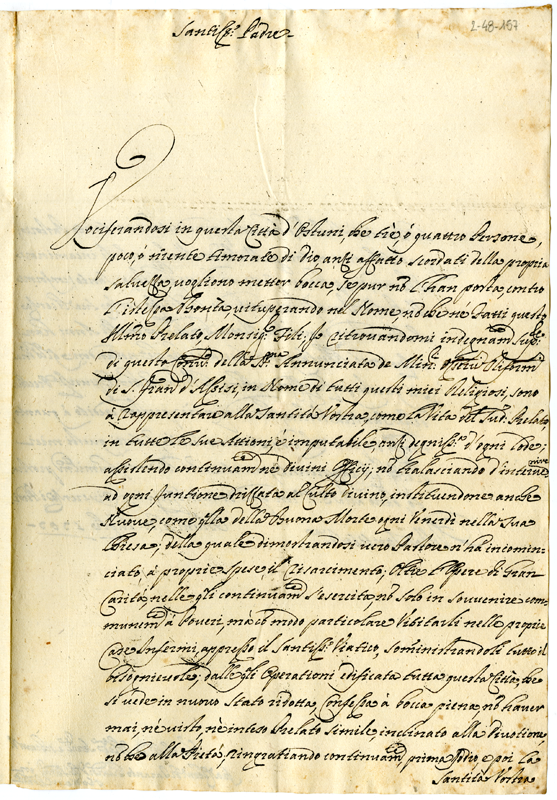 2-48-167
Santiss.º Padre
Vociferandosi in questa Città d'Ostuni, che trè, ò quattro Persone,
poco, ò niente timorate di Dio, anzi affatto scordati della propria
salvezza, vogliono metter bocca, se pur nõ l'han posta, contro
l'istessa Bontà, vituperando nel Nome, nõ che nè Fatti questo
Illmo Prelato, Monsig.r Fili; Io ritrovandomi indegnam.te Sup.re
di questo Conv.to della SS.ma Annunciata de Min: Osserv: Riform:
di S. Fran.co d'Assisi, in Nome di tutti questi miei Religiosi, sono
à rappresentar alla Santità Vostra, come la Vita del Sud.o Prelato
in tutte le sue Attioni è imputabile, anzi degniss.a d'ogni lode;
assistendo continuam.te nè divini Officij; nõ tralasciando d'intervenire
ad ogni funtione drizzata al culto divino, instituendone anche
Nuove, com'è q.lla della Buona Morte ogni Venerdì nella sua
Chiesa; della quale dimostrandosi vero Pastore n'hà incomin=
ciato à proprie spese, il risarcimento; Oltre l'Opere di gran
Carità, nelle q.li continuam.te s'esercita nõ solo in souvenire com=
munem.te à Poveri, mà cõ modo particolare Visitarli nelle proprie
case Infermi, appresso il Santiss.º Viatico, somministrandoli tutto il
bisognievole; dalle q.li Operationi edificata tutta questa Città; che
si vede in nuovo stato ridotta, confessa à bocca piena nõ haver
mai, nè visto, nè inteso Prelato simile inclinato alla divotione
nõ che alla Pietà, ringratiando continuam.te prima Iddio, e poi la
Santità Vostra